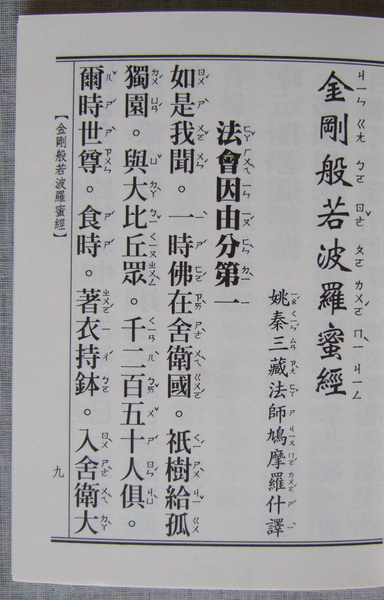 金剛般若波羅蜜經
姚秦三藏法師鳩摩羅什譯
法會因由分第一
如是我聞。一時佛在舍衛國。祇樹給孤
獨園。與大比丘眾。千二百五十人俱。
爾時世尊。食時。著衣持鉢。入舍衛大
【金剛般若波羅蜜經】
九